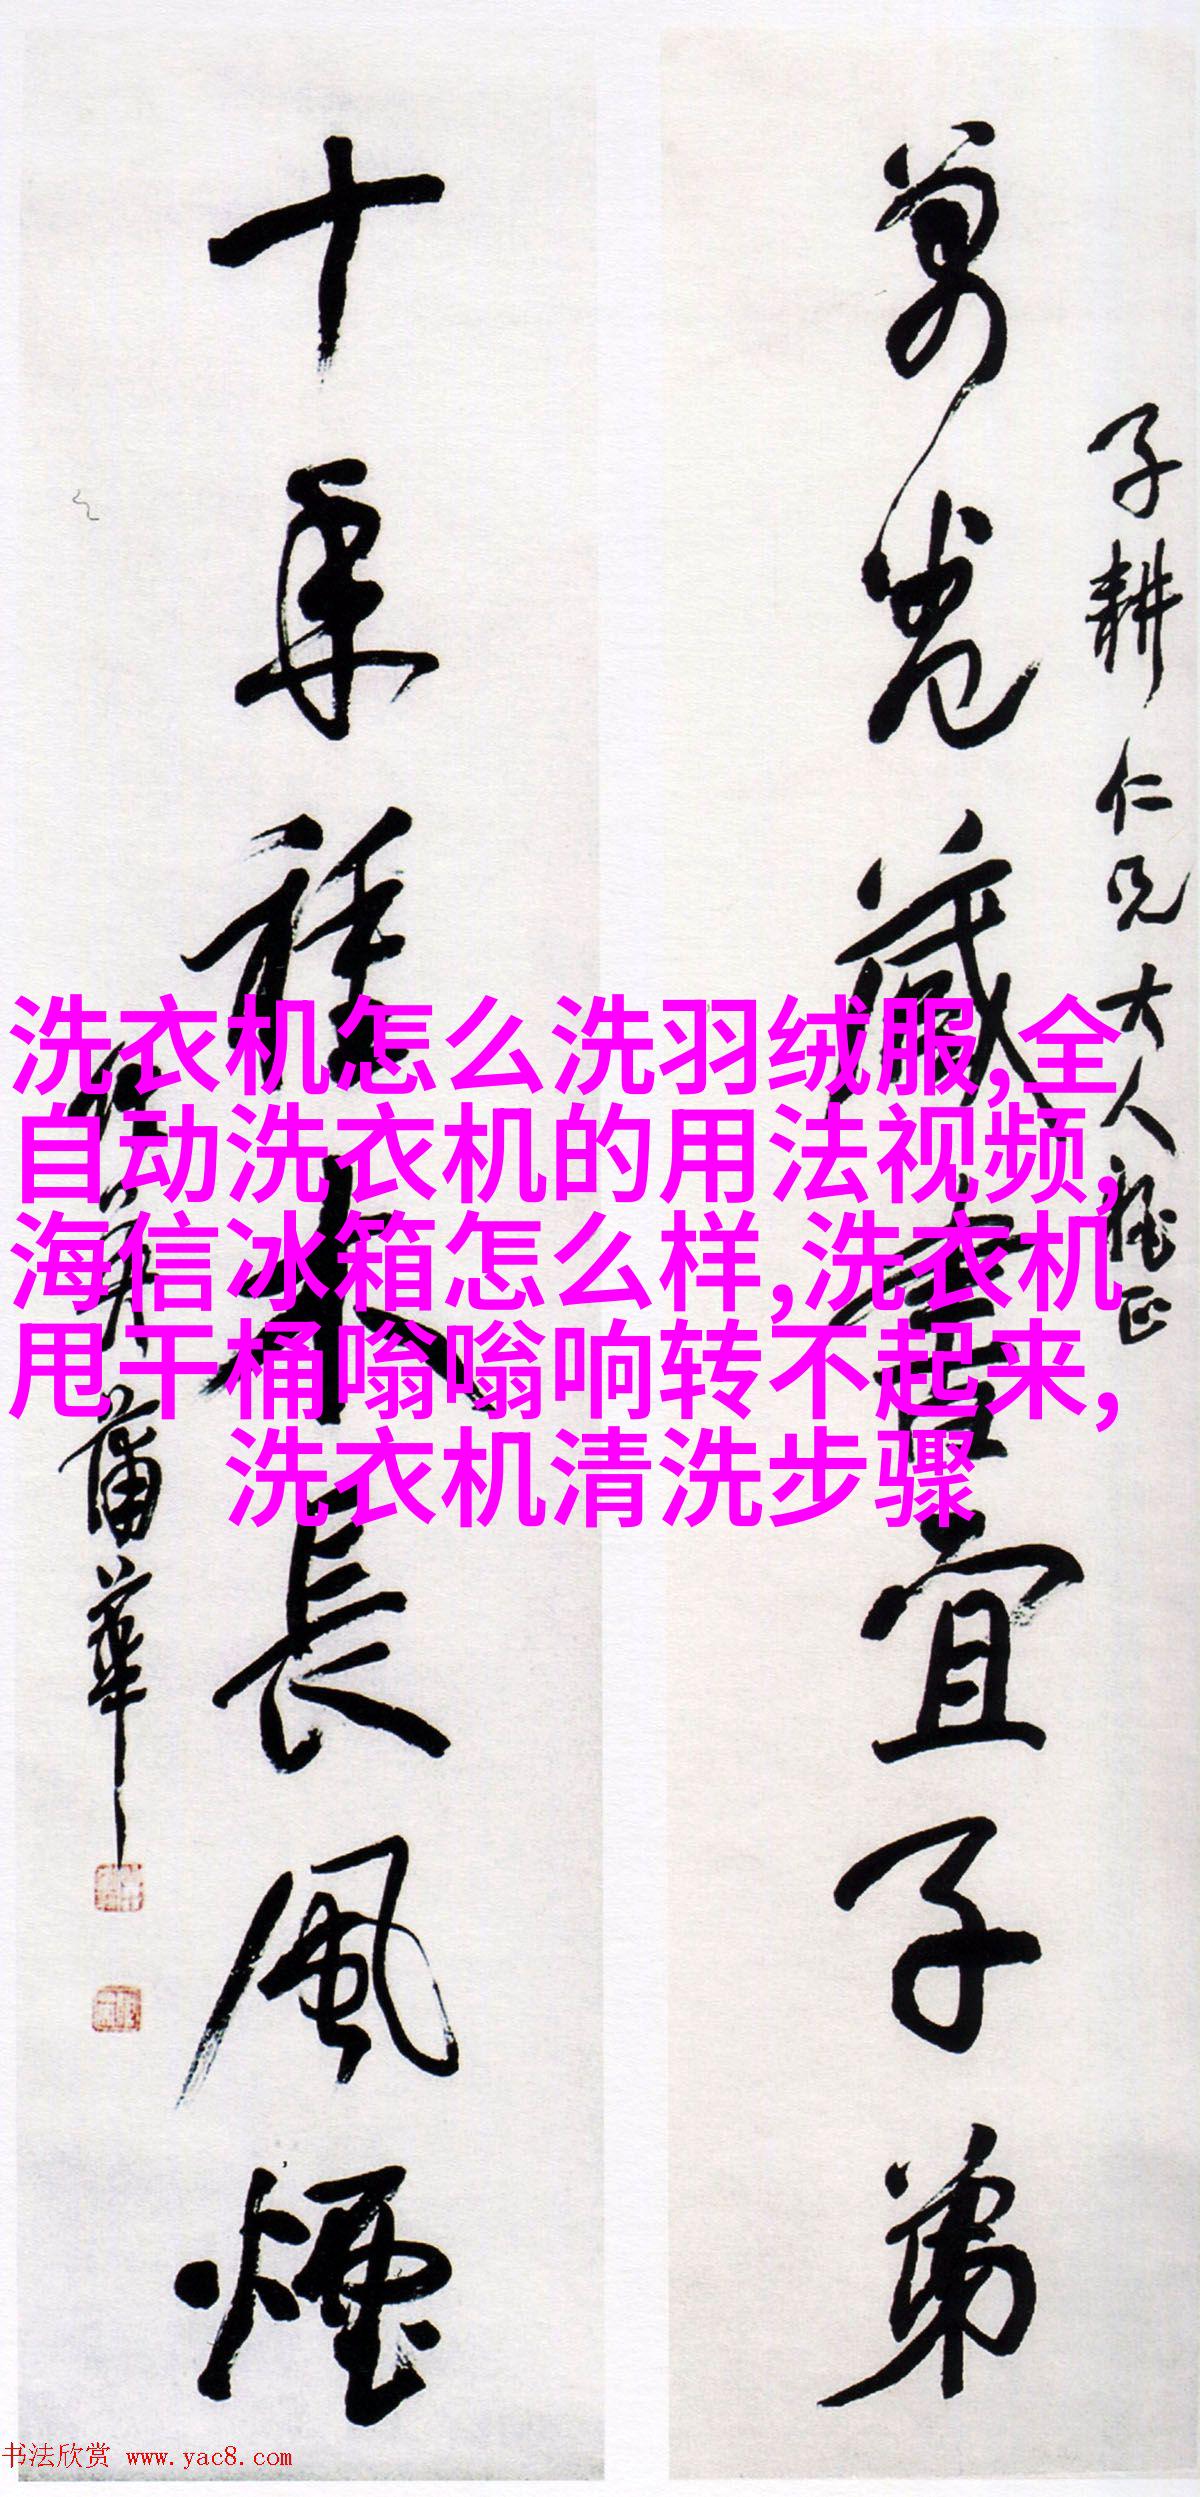 子耕仁兄大人雅正
萬卷藏書宜子弟
十年種木長風煙
蒲華
洗衣机怎么洗羽绒服,全
自动洗衣机的用法视频,
海信冰箱怎么样,洗衣机
甩干桶嗡嗡响转不起来,
洗衣机清洗步骤
书法欣赏 www.yac8.com